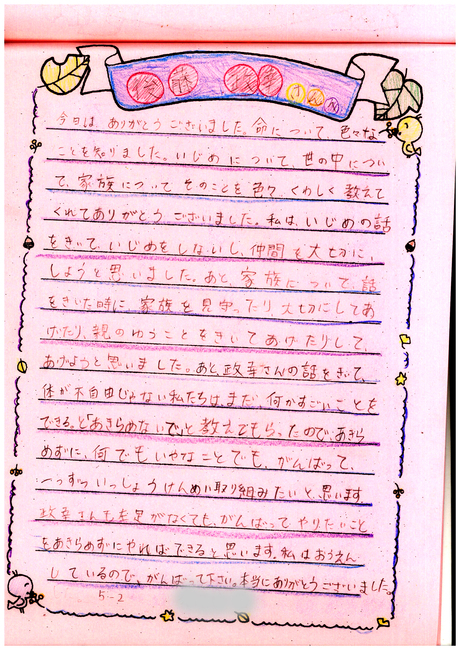 政幸さんへ
今日は ありがとうございました。命について 色々な
ことを知りました。いじめ について、世の中につい
て、家族について そのことを 色々 くわしく 教えて
くれてありがとう ございました。私は、いじめの話
をきいて、いじめをしないし、仲間を大切に、
しようと思いました。あと、家族について、話
をきいた時に、家族を見守ったり、大切にしてあ
げたり、親のゆうことをきいてあげたりして、
あげようと思いました。あと、政幸さんの話をきいて、
体が不自由じゃない私たちは、まだ、何かすごいことを
できる。と「あきらめないで。」と教えてもらったので、あきら
めずに、何でもいやなことでも、がんばって、
一つずついっしょうけんめい取り組みたいと、思います。
政幸さんも 足がなくても、がんばって やりたいこと
をあきらめずにやればできると思います。私はおうえん
しているので、がんばって下さい。本当にありがとうございました。
5-2